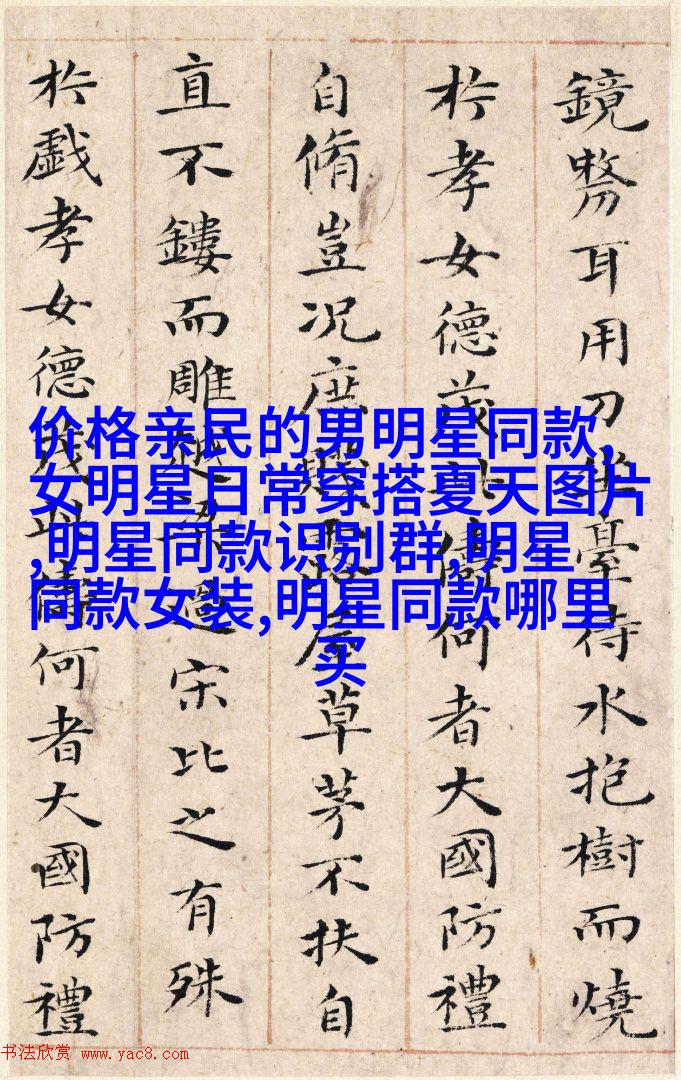 鏡剺耳用刀坐臺待水抱樹而燒
扵孝女德茂此儔何者大國防禮
自脩豈況庶賤露屋草茅不扶自
直不鏤而雕越梁過宋比之有殊
扵戯孝女德茂此儔何者大國防禮
价格亲民的男明星同款,
女明星日常穿搭夏天图片
,明星同款识别群,明星
同款女装,明星同款哪里
买
书法欣赏 www.yac8.com